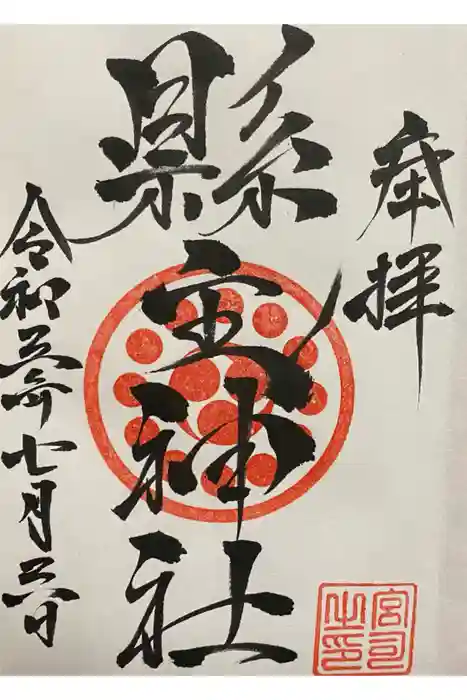 奉拝
縣主神社
令和五年七月日
宮司之印